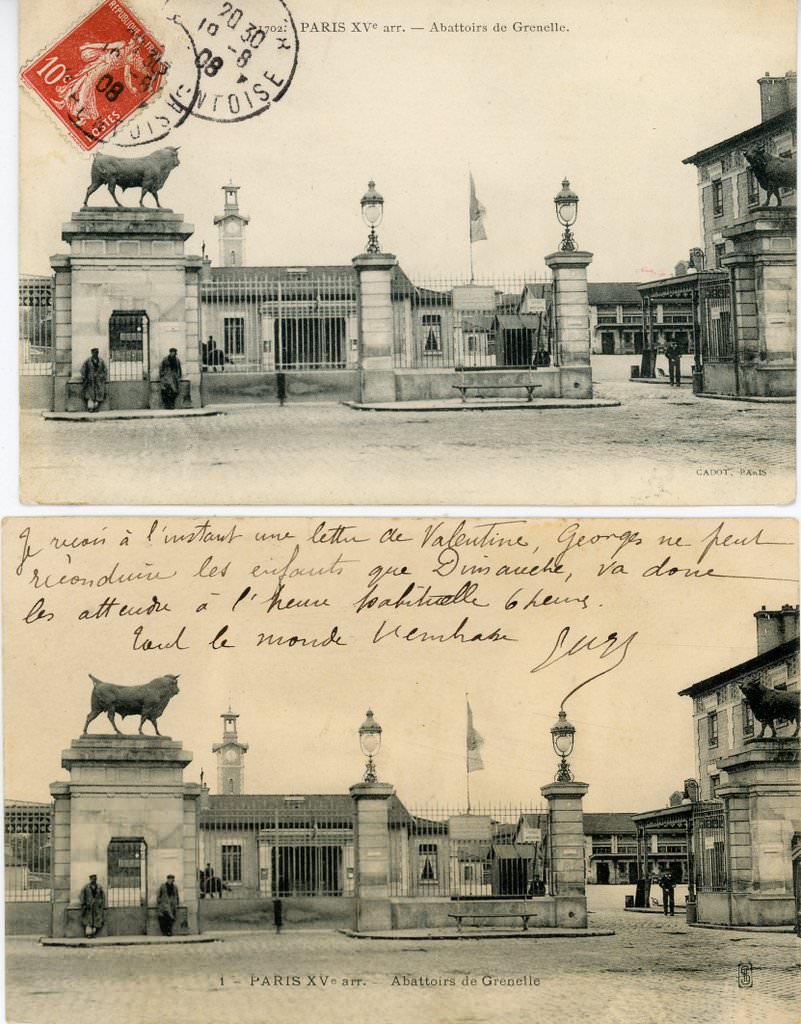 1702. PARIS XVe arr. — Abattoirs de Grenelle.
10c
POSTES
20 30
8
08
NTOISE
CADOT, PARIS
Je reçois à l'instant une lettre de Valentine, Georges ne peut
réconduire les enfants que Dimanche, va donc
les attendre à l'heure habituelle 6 heures.
Tout le monde t'embrasse
1 - PARIS XVe arr. - Abattoirs de Grenelle